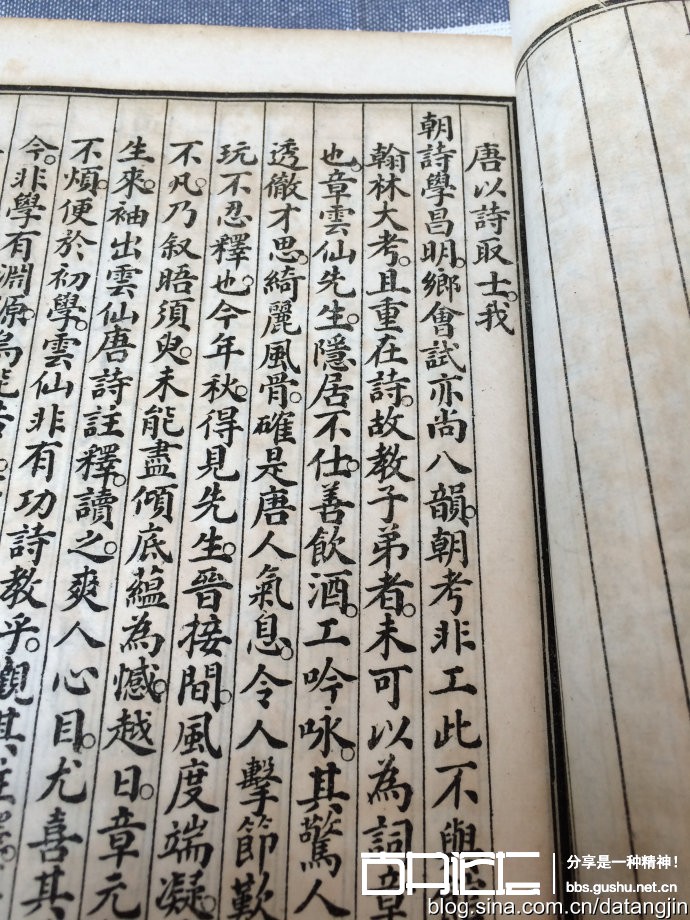 唐以詩取士。我
朝詩學昌明。鄉會試亦尚八韻。朝考非工此不與
翰林大考。且重在詩。故教子弟者。未可以為詞章
也。章雲仙先生。隱居不仕。善飲酒。工吟咏。其驚人
透徹才思。綺麗風骨。確是唐人氣息。令人擊節歎
玩不忍釋也。今年秋。得見先生。晉接間。風度端凝。
不凡。乃叙晤須臾。未能盡傾底蘊為憾。越日。章元
生來。袖出雲仙唐詩註釋。讀之。爽人心目。尤喜其
不煩。便於初學。雲仙非有功詩教乎。觀其註
今。非學有淵源。烏能
分享是一种精神!
bbs.gushu.net.cn
blog.sina.com.cn/datangjin